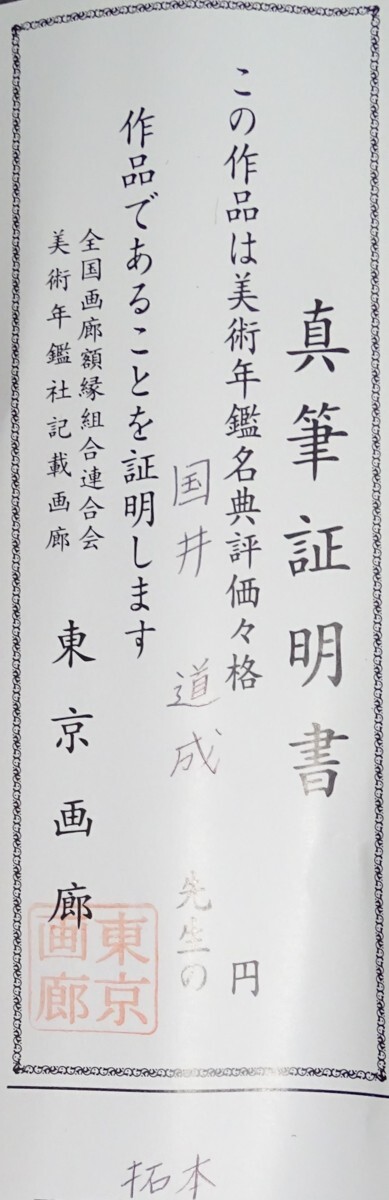 真筆証明書
この作品は美術年鑑名典評価々格 円
国井 道成 先生の
作品であることを証明します
全国画廊額縁組合連合会
美術年鑑社記載画廊
東京画廊
東京画廊
拓本